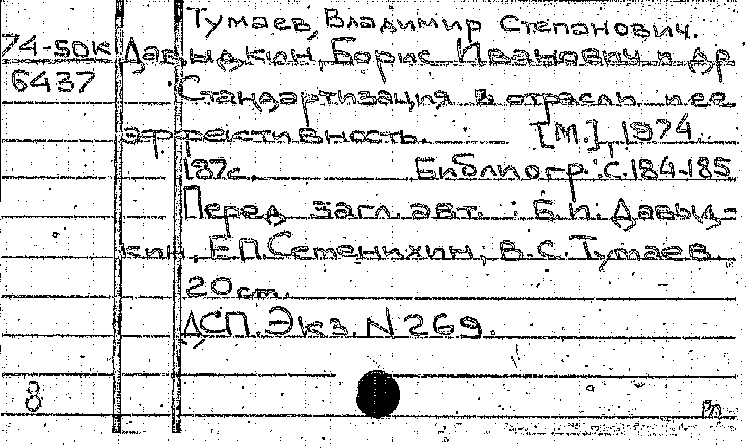 Тумаев, Владимир Степанович.
74-50к Давыдкин, Борис Иванович и др
6437 Стандартизация в отрасли и ее
эффективность. [М.], 1974.
187с. Библиогр.: с. 184-185
Перед загл. авт. : Б.И. Давыд-
кин, Е.П. Сетенихин, В.С. Тумаев.
20 см.
ДСП. Экз. N 269.
8